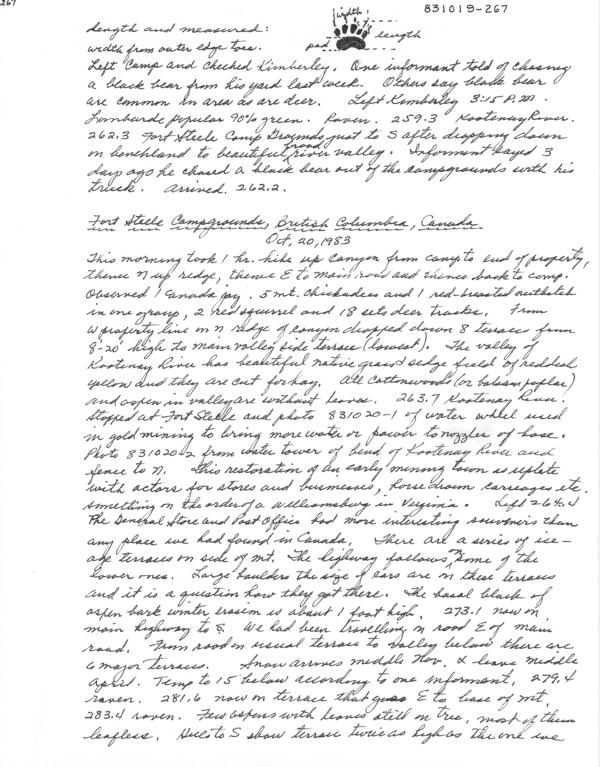 267
831019-267
width
length
pad
length and measured:
width from outer edge toes.
Left Camp and checked Kimberley. One informant told of chasing
a black bear from his yard last week. Others say black bear
are common in area as are deer. Left Kimberley 3:15 P.M.
Lombardy popular 90% green. Raven. 259.3 Kootenay River.
262.3 Fort Steele Camp Grounds just to S after dropping down
on benchland to beautiful broad river valley. Informent sayed 3
days ago he chased a black bear out of the campgrounds with his
truck. Arrived. 262.2.
Fort Steele Campgrounds, British Columbia, Canada
Oct. 20, 1983
This morning took 1 hr. hike up canyon from camp to end of property,
thence N up ridge, thence E to main road and thence back to camp.
Observed 1 Canada jay. 5 mt. chickadees and 1 red-breasted nuthatch
in one group, 2 red squirrel and 18 sets deer tracks. From
W property line on N ridge of canyon dropped down 8 terraces from
8'-20' high to main valley side terrace (lowest). The valley of
Kootenay River has beautiful native grass & sedge field of reddish
yellow and they are cut for hay. All Cottonwoods (or balsam poplar)
and aspen in valley are without leaves. 263.7 Kootenay River.
Stopped at Fort Steele and photo 831020-1 of water wheel used
in gold mining to bring more water or power to nozzles of hose.
Photo 831020-2 from water tower of bend of Kootenay River and
fence to N. This restoration of an early mining town is replete
with actors for stores and businesses, horse drawn carriages etc.
something on the order of a Williamsburg in Virginia. Left 264.4
The General Store and Post Office had more interesting souvenirs than
any place we had found in Canada. There are a series of ice-
age terraces on side of mt. The highway follows on some of the
lower ones. Large boulders the size of cars are on these terraces
and it is a question how they got there. The basal black of
aspen bark winter erosion is about 1 foot high. 273.1 now on
main highway to S. We had been travelling on road E of main
road. From road on usual terrace to valley below there are
6 major terraces. Snow arrives middle Nov. & leave middle
April. Temp to 15 below according to one informent. 279.4
raven. 281.6 now on terrace that goes E to base of mt.
283.4 raven. Few aspens with leaves still on tree, most of them
leafless. Hills to S show terrace twice as high as the one we